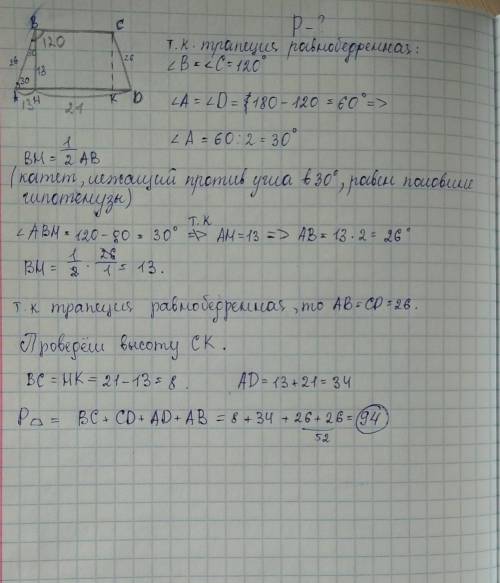 P-?
B
C
120
30
26
13
26
30
A
H
K
D
13
21
т.к. трапеция равнобедренная:
∠B = ∠C = 120°
∠A = ∠D = 180 - 120 = 60° =>
∠A = 60 : 2 = 30°
BH = 1/2 AB
(катет, лежащий против угла в 30°, равен половине
гипотенузы)
∠ABH = 120 - 90 = 30° => т.к AH = 13 => AB = 13 · 2 = 26°
BH = 1/2 · 26/1 = 13.
т.к трапеция равнобедренная, то AB = CD = 26.
Проведём высоту CK.
BC = HK = 21 - 13 = 8. AD = 13 + 21 = 34
P = BC + CD + AD + AB = 8 + 34 + 26 + 26 = 94
52